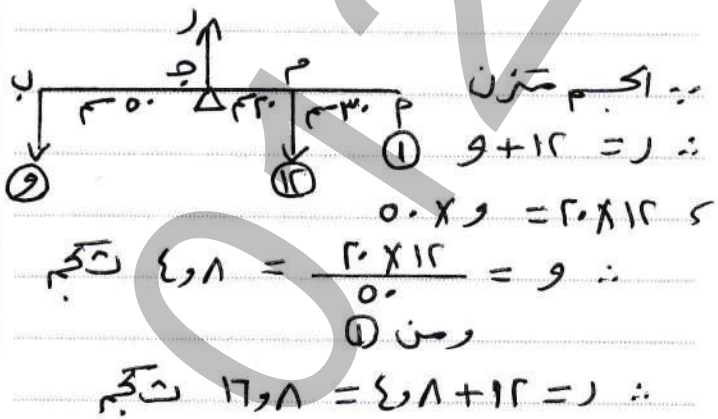 ر
ب ٥٠ سم جـ ٢٠ سم م ٣٠ سم م
و ١٢
∵ الجسم متزن
∴ ر = ١٢ + و ①
، ١٢ × ٢٠ = و × ٥٠
∴ و = ١٢ × ٢٠ / ٥٠ = ٤,٨ ث كجم
ومن ①
∴ ر = ١٢ + ٤,٨ = ١٦,٨ ث كجم